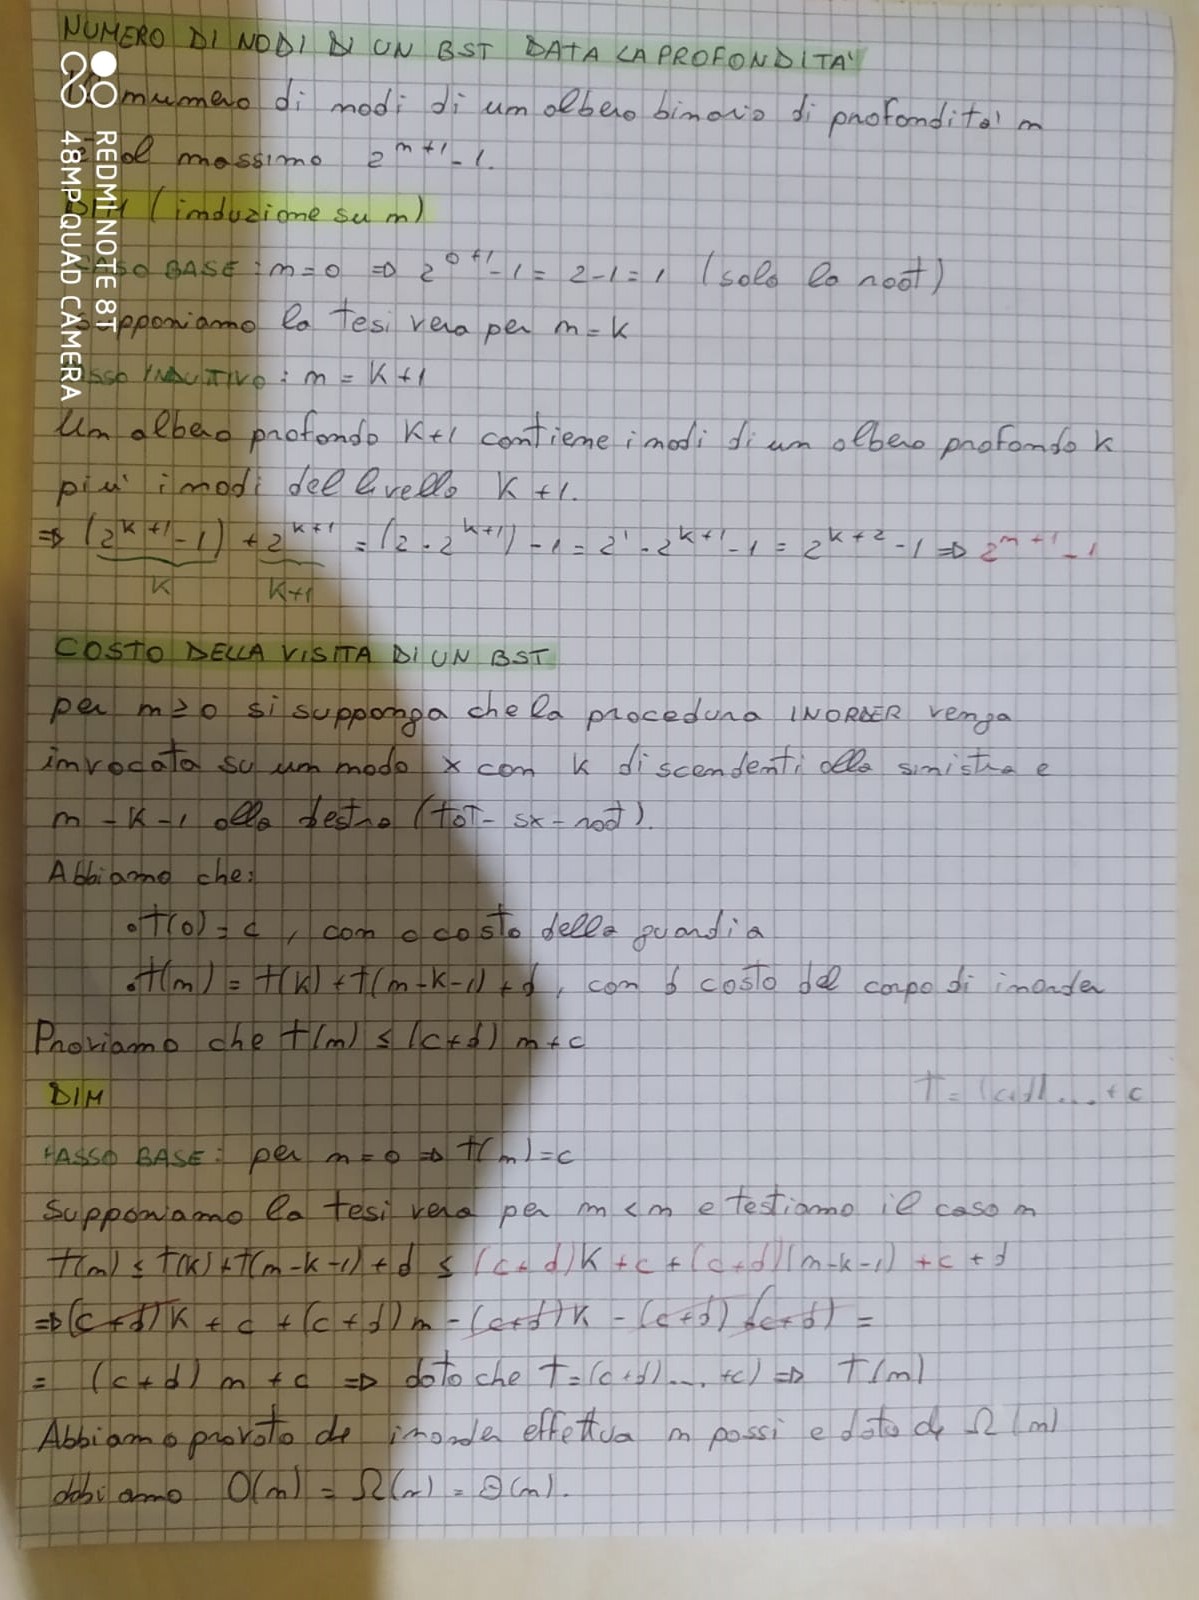 NUMERO DI NODI DI UN BST DATA LA PROFONDITA'
numero di nodi di un albero binario di profondita' n
al massimo 2^{n+1}-1.
DIM (induzione su n)
CASO BASE: n=0 ⇒ 2^{0+1}-1 = 2-1 = 1 (solo la root)
Supponiamo la tesi vera per n=k
PASSO INDUTTIVO: n = k+1
Un albero profondo k+1 contiene i nodi di un albero profondo k
piu' i nodi del livello k+1.
⇒ (2^{k+1}-1) + 2^{k+1} = (2·2^{k+1})-1 = 2^1·2^{k+1}-1 = 2^{k+2}-1 ⇒ 2^{n+1}-1
k k+1
COSTO DELLA VISITA DI UN BST
per n≥0 si supponga che la procedura INORDER venga
invocata su un nodo x con k discendenti alla sinistra e
n-k-1 alla destra (tot-sx-root).
Abbiamo che:
• T(0)=c, con c costo della guardia
• T(n) = T(k)+T(n-k-1)+d, con d costo del corpo di inorder
Proviamo che T(n) ≤ (c+d)n+c
DIM
T=(c+d)...+c
PASSO BASE: per n=0 ⇒ T(n)=c
Supponiamo la tesi vera per m<n e testiamo il caso n
T(n) ≤ T(k)+T(n-k-1)+d ≤ (c+d)k+c+(c+d)(n-k-1)+c+d
⇒ (c+d)k+c+(c+d)n-(c+d)k-(c+d) (c+d) =
= (c+d)n+c ⇒ dato che T=(c+d)...+c) ⇒ T(n)
Abbiamo provato che inorder effettua n passi e dato che Ω(n)
abbiamo O(n) = Ω(n) = Θ(n).
REDMI NOTE 8T
48MP QUAD CAMERA